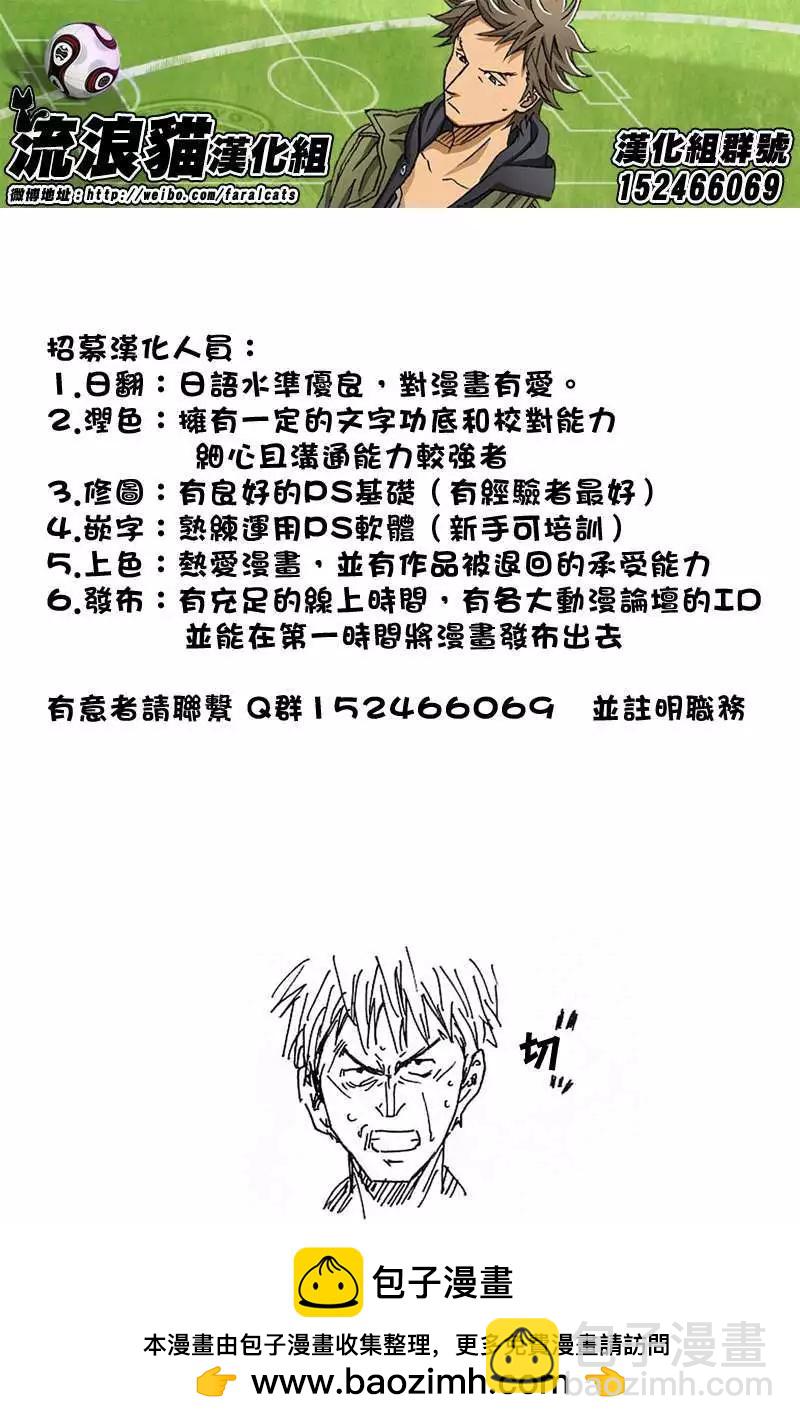 流浪貓漢化組
微博地址:http://weibo.com/faralcats
漢化組群號
152466069
招募漢化人員：
1.日翻：日語水準優良，對漫畫有愛。
2.潤色：擁有一定的文字功底和校對能力
細心且溝通能力較強者
3.修圖：有良好的PS基礎（有經驗者最好）
4.嵌字：熟練運用PS軟體（新手可培訓）
5.上色：熱愛漫畫，並有作品被退回的承受能力
6.發布：有充足的線上時間，有各大動漫論壇的ID
並能在第一時間將漫畫發布出去
有意者請聯繫 Q群152466069 並註明職務
切
包子漫畫
本漫畫由包子漫畫收集整理，更多免費漫畫請訪問
👉 www.baozimh.com 👈
包子漫畫
baozimh.com